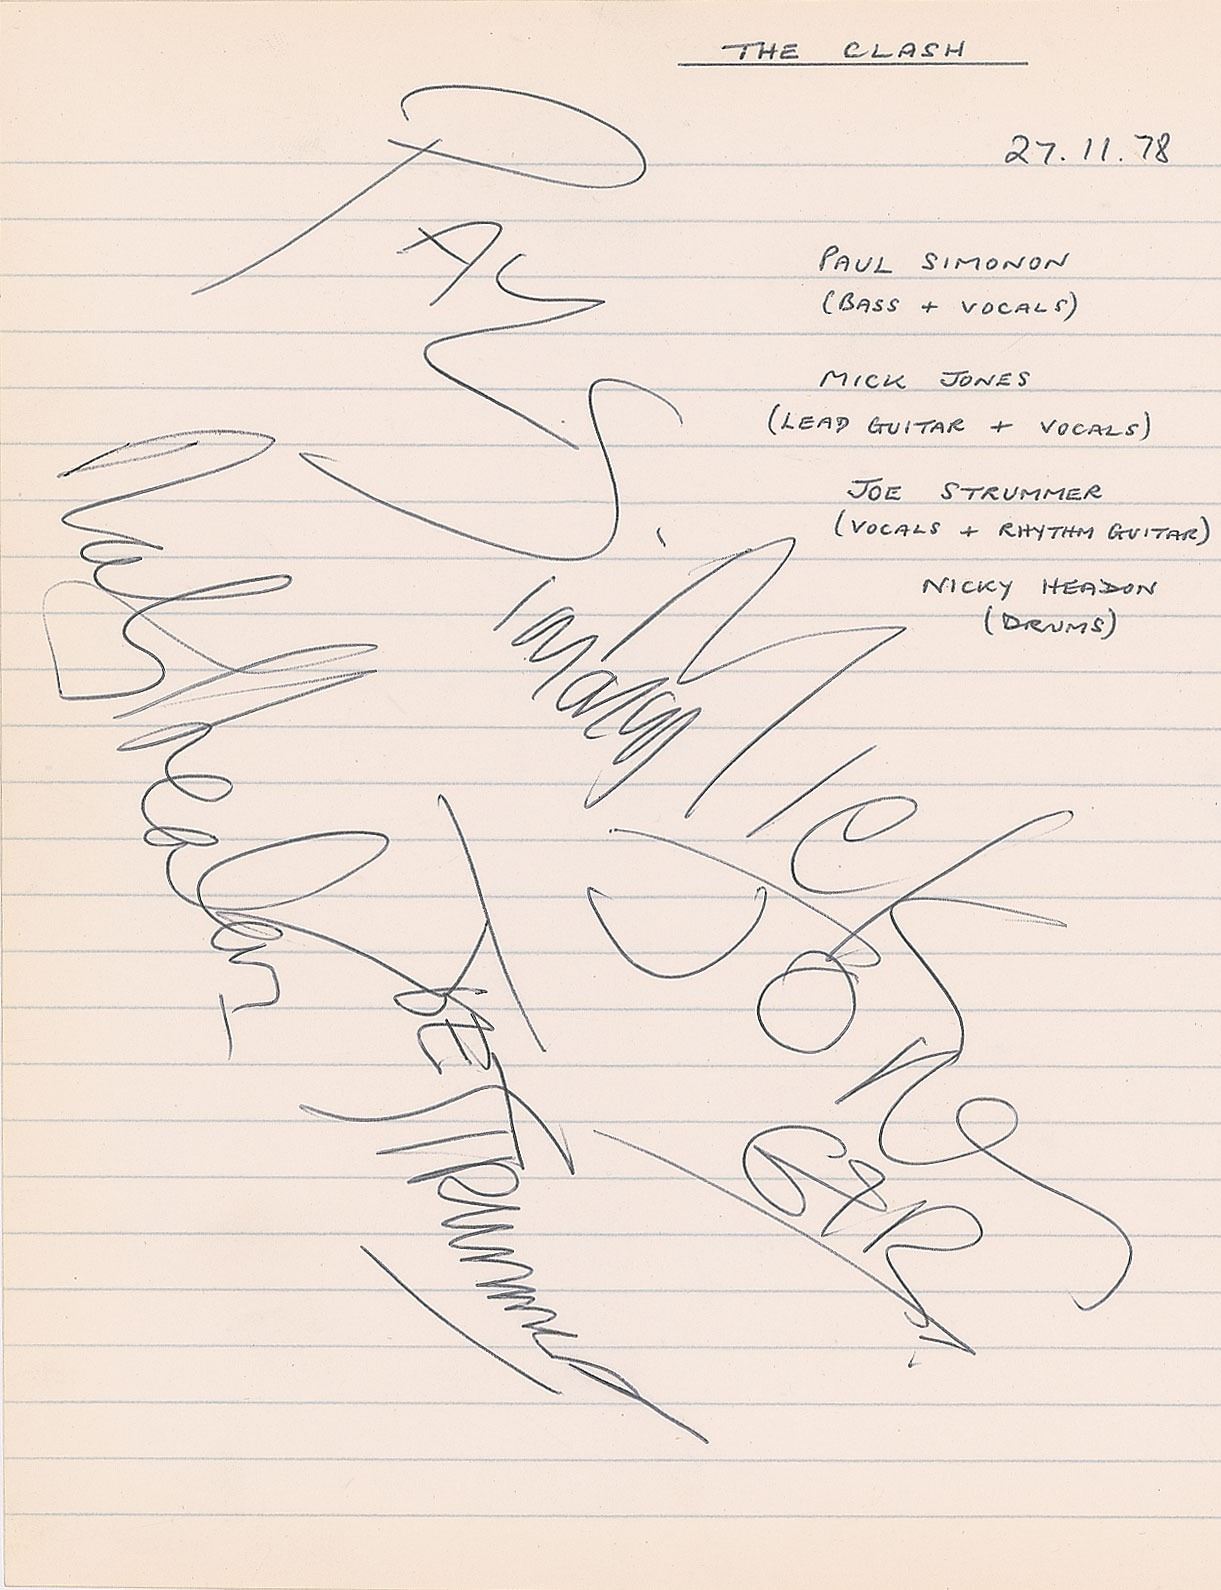 THE CLASH
27.11.78
PAUL SIMONON
(BASS + VOCALS)
MICK JONES
(LEAD GUITAR + VOCALS)
JOE STRUMMER
(VOCALS + RHYTHM GUITAR)
NICKY HEADON
(DRUMS)
PAUL S.
MICK
JONES
GTR
JOE
STRUMMER